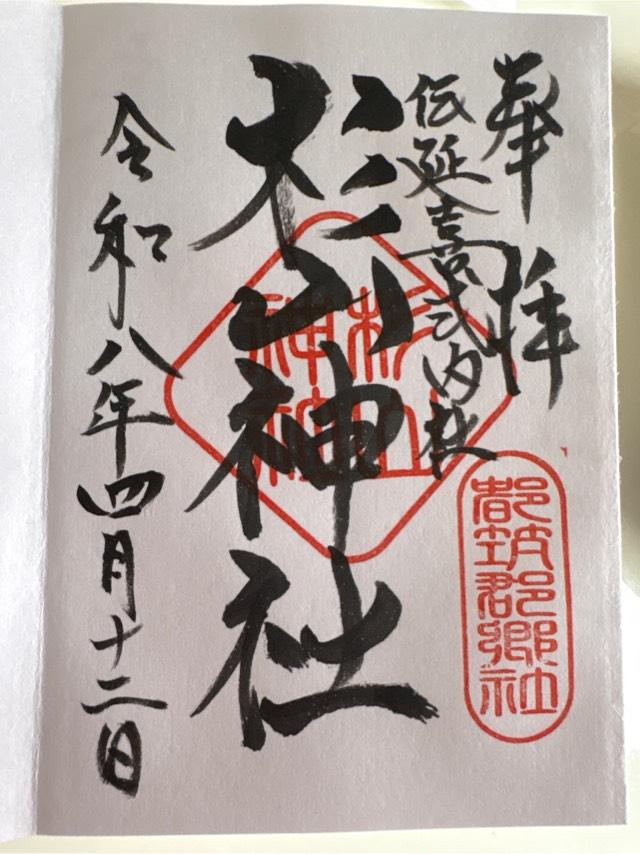 奉拝
伝延喜式内社
都筑郡郷社
杉山神社
杉山
神社
令和八年四月十二日